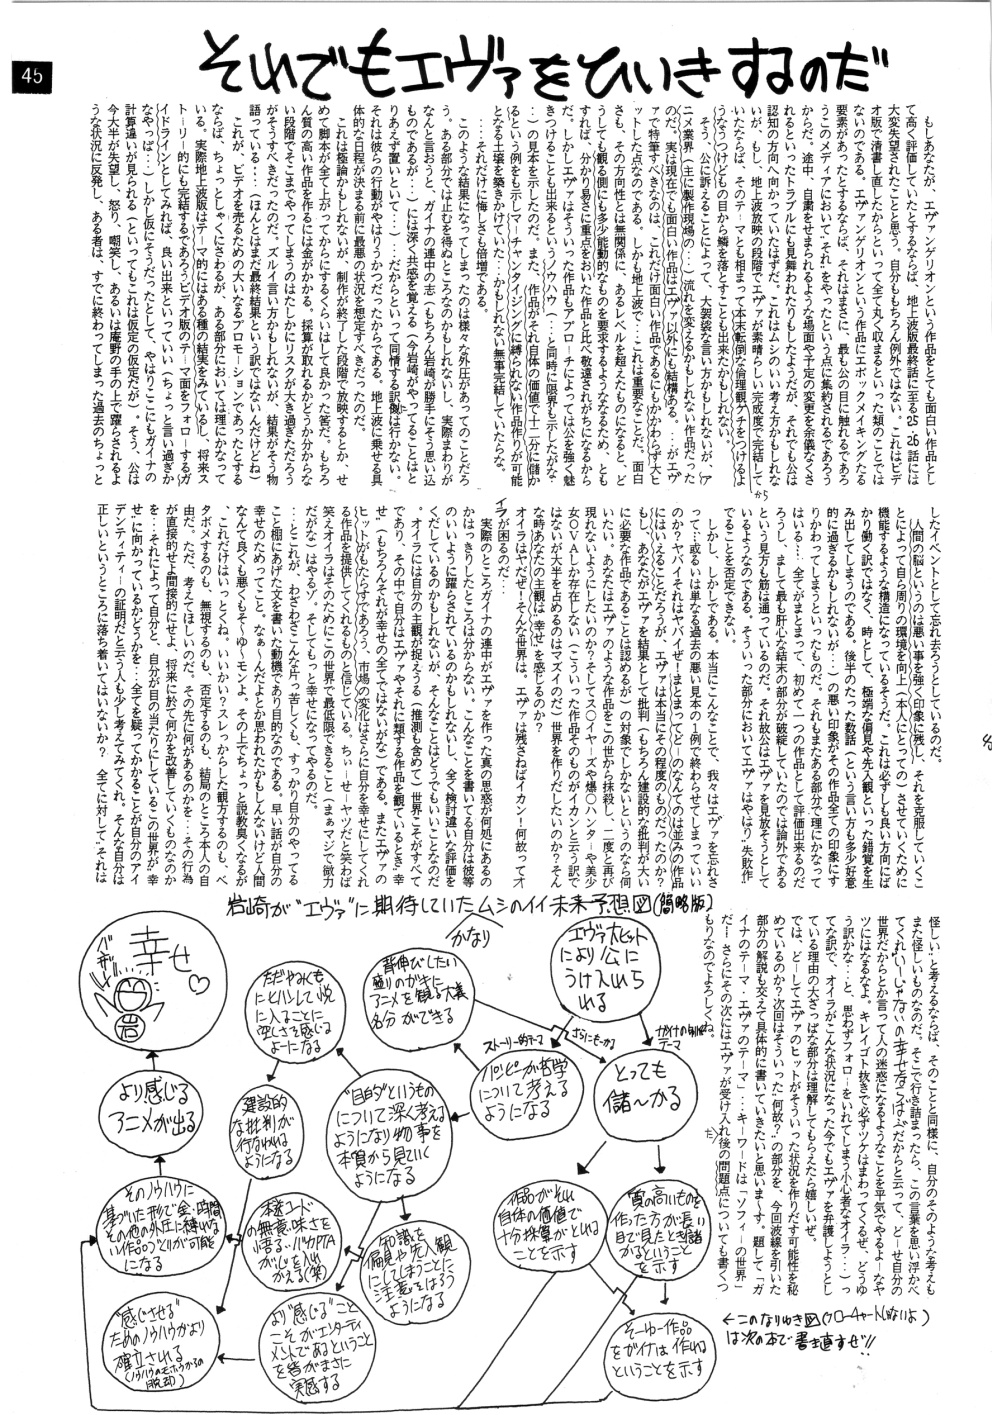 45
それでもエヴァをひいきするのだ
もしあなたが、エヴァンゲリオンという作品をとても面白い作品とし
て高く評価していたとするならば、地上波版最終話に至る25・26話には
大変失望されたことと思う。自分ももちろん例外ではない。これはビデ
オ版で清書し直したからといって全て丸く収まるといった類のことでは
ないのである。エヴァンゲリオンという作品にエポックメイキングたる
要素があったとするならば、それはまさに、最も公の目に触れるであろ
うこのメディアにおいて"それ"をやったという点に集約されるであろう
からだ。途中、自粛をせまられるような場面や予定の変更を余儀なくさ
れるといったトラブルにも見舞われたりもしたようだが、それでも公は
認知の方向へ向かっていたはずだ。これはムシのいい考え方かもしれな
いが、もし、地上波放映の段階でエヴァが素晴らしい完成度で完結して
いたならば、そのテーマとも相まって本末転倒な倫理観でケチをつけるよ
うなうつけどもの目から鱗を落とすことも出来たかもしれない。
そう、公に訴えることによって、大袈裟な言い方かもしれないが、(ア
ニメ業界(主に製作現場の…)流れを変えるかもしれない作品だった
のだ。実は現在でも面白い作品はエヴァ以外にも結構ある。…がエヴ
ァで特筆すべきなのは、これだけ面白い作品であるにもかかわらず大ヒ
ットした点なのである。しかも地上波で…これは重要なことだ。面白
さも、その方向性とは無関係に、あるレベルを超えたものになると、ど
うしても観る側にも多少能動的なものを要求するようななるため、とも
すれば、分かり易さに重点をおいた作品と比べ敬遠されがちになるから
だ。しかしエヴァはそういった作品もアプローチによっては公を強く魅
きつけることも出来るというノウハウ(…と同時に限界も示したがな
…)の見本を示したのだ。また、作品がそれ自体の価値で十二分に儲か
るという例をも示しマーチャンダイジングに縛られない作品作りが可能
となる土壌を築きかけていた…かもしれない無事完結していたらな。
…それだけに悔しさも倍増である。
このような結果になってしまったのは様々な外圧があってのことだろ
う。ある部分では止むを得ぬところなのかもしれないし、実際まわりが
なんと言おうと、ガイナの連中の志(もちろん岩崎が勝手にそう思い込
ものであるが…)には深く共感を覚える(今岩崎がやってることはと
りあえず置いといて…)…だからといって同情する訳には行かない。
それは彼らの行動がやはりうかつだったからである。地上波に乗せる具
体的な日程が決まる前に最悪の状況を想定すべきだったのだ。
これは極論かもしれないが、制作が終了した段階で放映するとか、せ
めて脚本が全て上がってからにするくらいはして良かった筈だ。もちろ
ん質の高い作品を作るには金がかかる。採算が取れるかどうか分からな
い段階でそこまでやってしまうのはたしかにリスクが大き過ぎただろう
がそうすべきだったのだ。ズルイ言い方かもしれんが、結果がそう物
語っている…(ほんとはまだ最終結果という訳ではないんだけどね)
これが、ビデオを売るための大いなるプロモーションであったとする
ならば、ちょっとしゃくにさわるが、ある部分においては理にかなって
いる。実際地上波版はテーマ的にはある種の結実をみているし、将来ス
トーリー的にも完結するであろうビデオ版のテーマ面をフォローするガ
イドラインとしてみれば、良い出来といっていい(ちょっと言い過ぎか
なやっぱ…)しかし仮にそうだったとして、やはりここにもガイナの
計算違いが見られる(といってもこれは仮定の仮定だが)。そう、公は
今大半が失望し、怒り、嘲笑し、あるいは庵野の手の上で躍らされるよ
うな状況に反発し、ある者は、すでに終わってしまった過去のちょっと
から
したイベントとして忘れ去ろうとしているのだ。
人間の脳というのは悪い事を強く印象に残し、それを克服していくこ
とによって自ら周りの環境を向上(本人にとっての)させていくために
機能するような構造になっているそうだ。これは必ずしも良い方向にば
かり働く訳ではなく、時として、極端な偏見や先入観といった錯覚を生
み出してしまうのである。後半のたった数話(という言い方も多少好意
的に過ぎるかもしれないが…)の悪い印象がその作品全ての印象にす
りかわってしまうといったものだ。それもまたある部分で理にかなって
はいる…。全てがまとまって、初めて一つの作品として評価出来るのだ
ろうし、まして最も肝心な結末の部分が破綻していたのでは論外である
という見方も筋は通っているのだ。それ故公はエヴァを見放そうとして
いることを否定できない。そういった部分においてエヴァはやはり"失敗作"
であることを否定できない。
しかし、しかしである。本当にこんなことで、我々はエヴァを忘れさ
って…或るいは単なる過去の悪い見本の1例で終わらせてしまっていい
のか?ヤバイそれはヤバイぜ!まとまってど〜のなんてのは並みの作品
にはいえることだろうが、エヴァは本当にその程度のものだったのか?
もし、あなたがエヴァを結果として批判(もちろん建設的な批判が大い
に必要な作品であることは認めるが)の対象でしかないというのなら何
いたい、あなたはエヴァのような作品をこの世から抹殺し、二度と再び
現れないようにしたいのか?そしてス○イヤーズや爆○ハンターや美少
女○VAしか存在しない(こういった作品そのものがイカンと云う訳で
はないが大半を占めるのはマズイのだ)世界を作りだしたいのか?そん
な時あなたの主観は"幸せ"を感じるのか?
オイラはヤだぜ!そんな世界は。エヴァは残さねばイカン!何故ってオ
イラが困るのだ…
実際のところガイナの連中がエヴァを作った真の思惑が何処にあるの
かはっきりしたところは分からない。こんなことを書いてる自分は彼等
のいいように躍らされているのかもしれないし、全く検討違いな評価を
くだしているのかもしれないが、そんなことはどうでもいいことなのだ
オイラには自分の主観が捉えうる(推測も含めて)世界こそがすべて
であり、その中で自分はエヴァやそれに類する作品を観ているとき"幸
せ"(もちろんそれが幸せの全てではないがな)である。またエヴァの
ヒットがもたらすであろう、市場の変化はさらに自分を幸せにしてくれ
る作品を提供してくれるものと信じている。ちぃーせーヤツだと笑わば
笑えオイラはそのためにこの世界で最低限できること(まぁマジで微力
だがな)はやるゾ。そしてもっと幸せになってやるのだ。
…とこれが、わざわざこんな片っ苦しくも、すっかり自分のやってる
こと棚にあげた文を書いた動機であり目的な訳である。早い話が自分の
幸せのためってこと。なぁ〜んだよとか思われたかもしんないけど人間
なんて良くも悪くもそぐゆーモンよ。その上でちょっと説教臭くなるが
、これだけはいっとくね。いいかい?スレっからした観方するのも、ベ
タボメするのも、無視するのも、否定するのも、結局のところ本人の自
由だ。ただ、考えてほしいのだ。その先に何があるのかを…その行為
が直接的せよ間接的にせよ、将来に於て何かを改善していくものなのか
を…それによって自分と、自分が目の当たりにしているこの世界が"幸
せ"に向かっているかどうかを…全てを疑ってかかることが自分のアイ
デンティティーの証明だと云う人も少し考えてみてくれ。そんな自分は
正しいというところに落ち着いてはいないか?　全てに対して"それは
怪しい"と考えるならば、そのことと同様に、自分のそのような考えも
また怪しいものなのだ。そこで行き詰まったら、この言葉を思い浮かべ
てくれ"い〜じゃないの幸せならば"だからと云って、ど〜せ自分の
世界だからとか言って人の迷惑になるようなことを平気でやるよ〜なヤ
ツにはなるなよ。キレイゴト抜きで必ずツケはまわってくるぜ、どうゆ
う訳かな…と、思わずフォローをいれてしまう小心者なオイラ…)っ
てな訳で、オイラがこんな状況になった今でもエヴァを弁護しようとし
ている理由の大ざっぱな部分は理解してもらえたら嬉しいぜ。
では、ど〜してエヴァのヒットがそういった状況を作りだす可能性を秘
めているのか?次回はそういった"何故?"の部分を、今回波線を引いた
部分の解説も交えて具体的に書いていきたいと思いま〜す。題して「ガ
イナのテーマ・エヴァのテーマ」…キーワードは「ソフィーの世界」
だ!さらにその次にはエヴァが受け入れ後の問題点についても書くつ
もりなのでよろしくね。
岩崎が"エヴァ"に期待していたムシのイイ未来予想図(簡略版)
かなり
エヴァ大ヒット
により公に
うけ入れら
れる
ガイナの制作
テーマ
さらにもーかる
とっても
儲〜かる
ストーリー的テーマ
パンピーが哲学
について考える
ようになる
背伸びしたい
盛りのガキに
アニメを観る大義
名分ができる
ただやみくも
にヒハンして悦
に入ることに
空しさを感じる
よーになる
"目的"というもの
について深く考える
ようになり物事を
本質から見ていく
ようになる
建設的
な批判が
行なわれる
ようになる
幸せ♡
バンザイ
岩
より感じる
アニメが出る
そのノウハウに
基づいた形で金・時間
その他の外圧に縛られな
い作品づくりが可能
になる
放送コード
の無意味さを
悟る…バカPTA
が心を入れ
かえる(笑)
知識を
偏見や先入観
にしてしまうことに
注意をはらう
ようになる
作品がそれ
自体の価値で
十分採算がとれる
ことを示す
質の高いものを
作った方が長い
目で見たとき儲
かるということ
を示す
"感じさせる"
ためのノウハウがより
確立される
(ノウハウのモホウからの
脱却)
より"感じる"こと
こそがエンターティ
メントであるということ
を皆がまさに
実感する
そーゆー作品
をガイナは作れる
ということを示す
←このなりゆき図(フローチャートじゃないよ)
は次の本で書き直すぜ!!